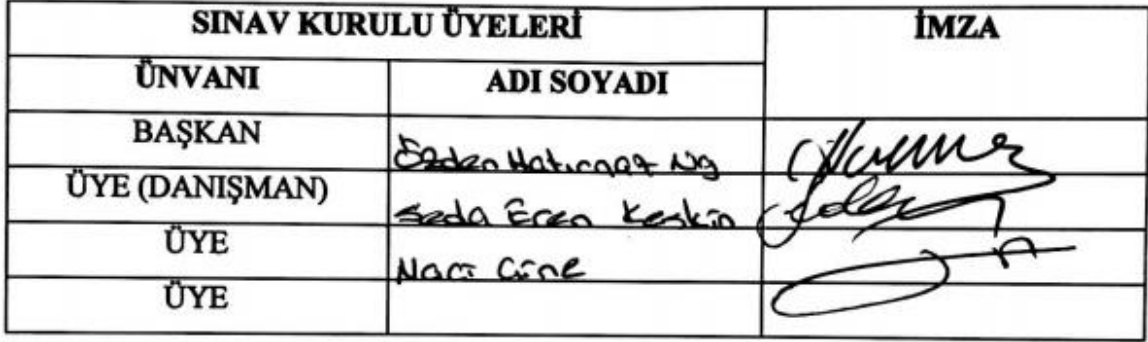 SINAV KURULU ÜYELERİ İMZA
ÜNVANI ADI SOYADI
BAŞKAN Özden Hatırnaz Ng
ÜYE (DANIŞMAN) Seda Eren Keskin
ÜYE Naci Çine
ÜYE